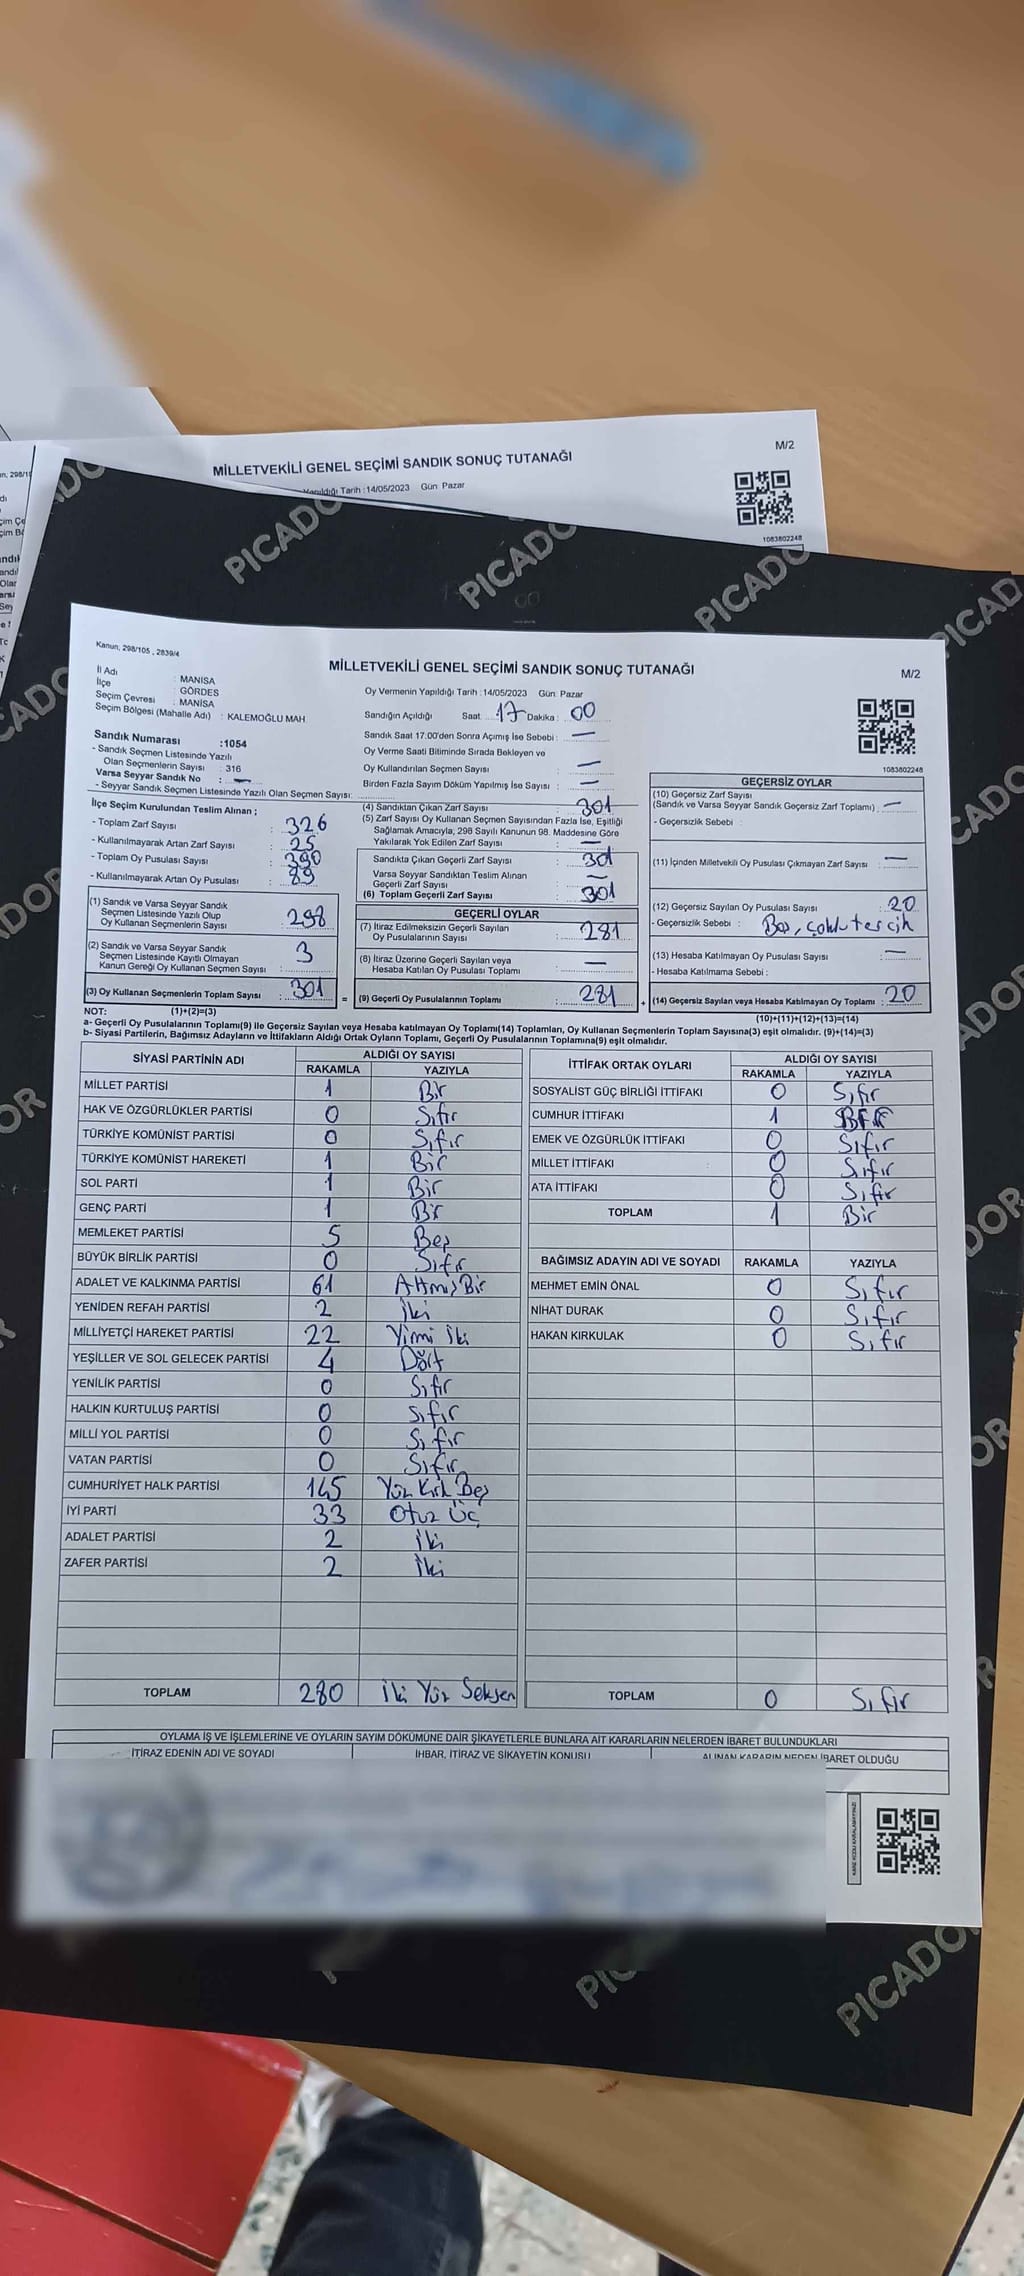 MİLLETVEKİLİ GENEL SEÇİMİ SANDIK SONUÇ TUTANAĞI
M/2
Tarih :14/05/2023 Gün: Pazar
1083802248
PICADOR
PICADOR
PICADOR
Kanun, 298/105 , 2839/4
MİLLETVEKİLİ GENEL SEÇİMİ SANDIK SONUÇ TUTANAĞI
M/2
İl Adı : MANİSA
İlçe : GÖRDES
Seçim Çevresi : MANİSA
Seçim Bölgesi (Mahalle Adı) : KALEMOĞLU MAH.
Oy Vermenin Yapıldığı Tarih :14/05/2023 Gün: Pazar
Sandığın Açıldığı Saat 17 Dakika: 00
Sandık Saat 17.00'den Sonra Açımış İse Sebebi : —
Oy Verme Saati Bitiminde Sırada Bekleyen ve
Oy Kullandırılan Seçmen Sayısı : —
Birden Fazla Sayım Döküm Yapılmış İse Sayısı : —
1083802248
Sandık Numarası :1054
- Sandık Seçmen Listesinde Yazılı
Olan Seçmenlerin Sayısı : 316
Varsa Seyyar Sandık No : —
- Seyyar Sandık Seçmen Listesinde Yazılı Olan Seçmen Sayısı:
İlçe Seçim Kurulundan Teslim Alınan ;
- Toplam Zarf Sayısı : 326
- Kullanılmayarak Artan Zarf Sayısı : 25
- Toplam Oy Pusulası Sayısı : 390
- Kullanılmayarak Artan Oy Pusulası : 89
(1) Sandık ve Varsa Seyyar Sandık
Seçmen Listesinde Yazılı Olup
Oy Kullanan Seçmenlerin Sayısı : 298
(2) Sandık ve Varsa Seyyar Sandık
Seçmen Listesinde Kayıtlı Olmayan
Kanun Gereği Oy Kullanan Seçmen Sayısı : 3
(3) Oy Kullanan Seçmenlerin Toplam Sayısı : 301
(4) Sandıktan Çıkan Zarf Sayısı : 301
(5) Zarf Sayısı Oy Kullanan Seçmen Sayısından Fazla İse, Eşitliği
Sağlamak Amacıyla, 298 Sayılı Kanunun 98. Maddesine Göre
Yakılarak Yok Edilen Zarf Sayısı : —
Sandıkta Çıkan Geçerli Zarf Sayısı : 301
Varsa Seyyar Sandıktan Teslim Alınan
Geçerli Zarf Sayısı : —
(6) Toplam Geçerli Zarf Sayısı : 301
GEÇERLİ OYLAR
(7) İtiraz Edilmeksizin Geçerli Sayılan
Oy Pusulalarının Sayısı : 281
(8) İtiraz Üzerine Geçerli Sayılan veya
Hesaba Katılan Oy Pusulası Toplamı : —
= (9) Geçerli Oy Pusulalarının Toplamı : 281
GEÇERSİZ OYLAR
(10) Geçersiz Zarf Sayısı
(Sandık ve Varsa Seyyar Sandık Geçersiz Zarf Toplamı) : —
- Geçersizlik Sebebi :
(11) İçinden Milletvekili Oy Pusulası Çıkmayan Zarf Sayısı : —
(12) Geçersiz Sayılan Oy Pusulası Sayısı : 20
- Geçersizlik Sebebi : Boş, çoklu tercih
(13) Hesaba Katılmayan Oy Pusulası Sayısı : —
- Hesaba Katılmama Sebebi :
+ (14) Geçersiz Sayılan veya Hesaba Katılmayan Oy Toplamı : 20
NOT: (1)+(2)=(3)
(10)+(11)+(12)+(13)=(14)
a- Geçerli Oy Pusulalarının Toplamı(9) ile Geçersiz Sayılan veya Hesaba katılmayan Oy Toplamı(14) Toplamları, Oy Kullanan Seçmenlerin Toplam Sayısına(3) eşit olmalıdır. (9)+(14)=(3)
b- Siyasi Partilerin, Bağımsız Adayların ve İttifakların Aldığı Ortak Oyların Toplamı, Geçerli Oy Pusulalarının Toplamına(9) eşit olmalıdır.
SİYASİ PARTİNİN ADI ALDIĞI OY SAYISI
RAKAMLA YAZIYLA
MİLLET PARTİSİ 1 Bir
HAK VE ÖZGÜRLÜKLER PARTİSİ 0 Sıfır
TÜRKİYE KOMÜNİST PARTİSİ 0 Sıfır
TÜRKİYE KOMÜNİST HAREKETİ 1 Bir
SOL PARTİ 1 Bir
GENÇ PARTİ 1 Bir
MEMLEKET PARTİSİ 5 Beş
BÜYÜK BİRLİK PARTİSİ 0 Sıfır
ADALET VE KALKINMA PARTİSİ 61 Atmış Bir
YENİDEN REFAH PARTİSİ 2 İki
MİLLİYETÇİ HAREKET PARTİSİ 22 Yirmi İki
YEŞİLLER VE SOL GELECEK PARTİSİ 4 Dört
YENİLİK PARTİSİ 0 Sıfır
HALKIN KURTULUŞ PARTİSİ 0 Sıfır
MİLLİ YOL PARTİSİ 0 Sıfır
VATAN PARTİSİ 0 Sıfır
CUMHURİYET HALK PARTİSİ 145 Yüz Kırk Beş
İYİ PARTİ 33 Otuz Üç
ADALET PARTİSİ 2 İki
ZAFER PARTİSİ 2 İki
TOPLAM 280 İki Yüz Seksen
İTTİFAK ORTAK OYLARI ALDIĞI OY SAYISI
RAKAMLA YAZIYLA
SOSYALİST GÜÇ BİRLİĞİ İTTİFAKI 0 Sıfır
CUMHUR İTTİFAKI 1 Bir
EMEK VE ÖZGÜRLÜK İTTİFAKI 0 Sıfır
MİLLET İTTİFAKI 0 Sıfır
ATA İTTİFAKI 0 Sıfır
TOPLAM 1 Bir
BAĞIMSIZ ADAYIN ADI VE SOYADI RAKAMLA YAZIYLA
MEHMET EMİN ÖNAL 0 Sıfır
NİHAT DURAK 0 Sıfır
HAKAN KIRKULAK 0 Sıfır
TOPLAM 0 Sıfır
OYLAMA İŞ VE İŞLEMLERİNE VE OYLARIN SAYIM DÖKÜMÜNE DAİR ŞİKAYETLERLE BUNLARA AİT KARARLARIN NELERDEN İBARET BULUNDUKLARI
İTİRAZ EDENİN ADI VE SOYADI İHBAR, İTİRAZ VE ŞİKAYETİN KONUSU ALINAN KARARIN NEDEN İBARET OLDUĞU
PICADOR